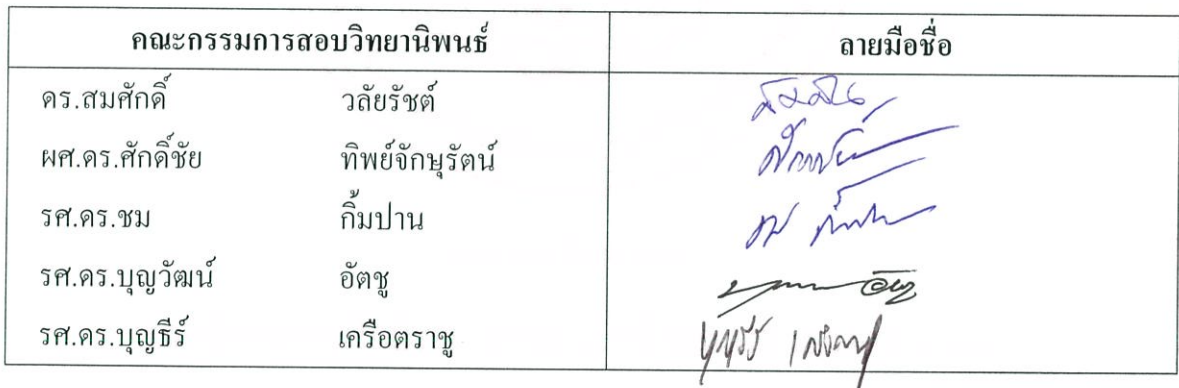 คณะกรรมการสอบวิทยานิพนธ์ ลายมือชื่อ
ดร.สมศักดิ์ วลัยรัชต์
ผศ.ดร.ศักดิ์ชัย ทิพย์จักษุรัตน์
รศ.ดร.ชม กิ้มปาน
รศ.ดร.บุญวัฒน์ อัตชู
รศ.ดร.บุญธีร์ เครือตราชู